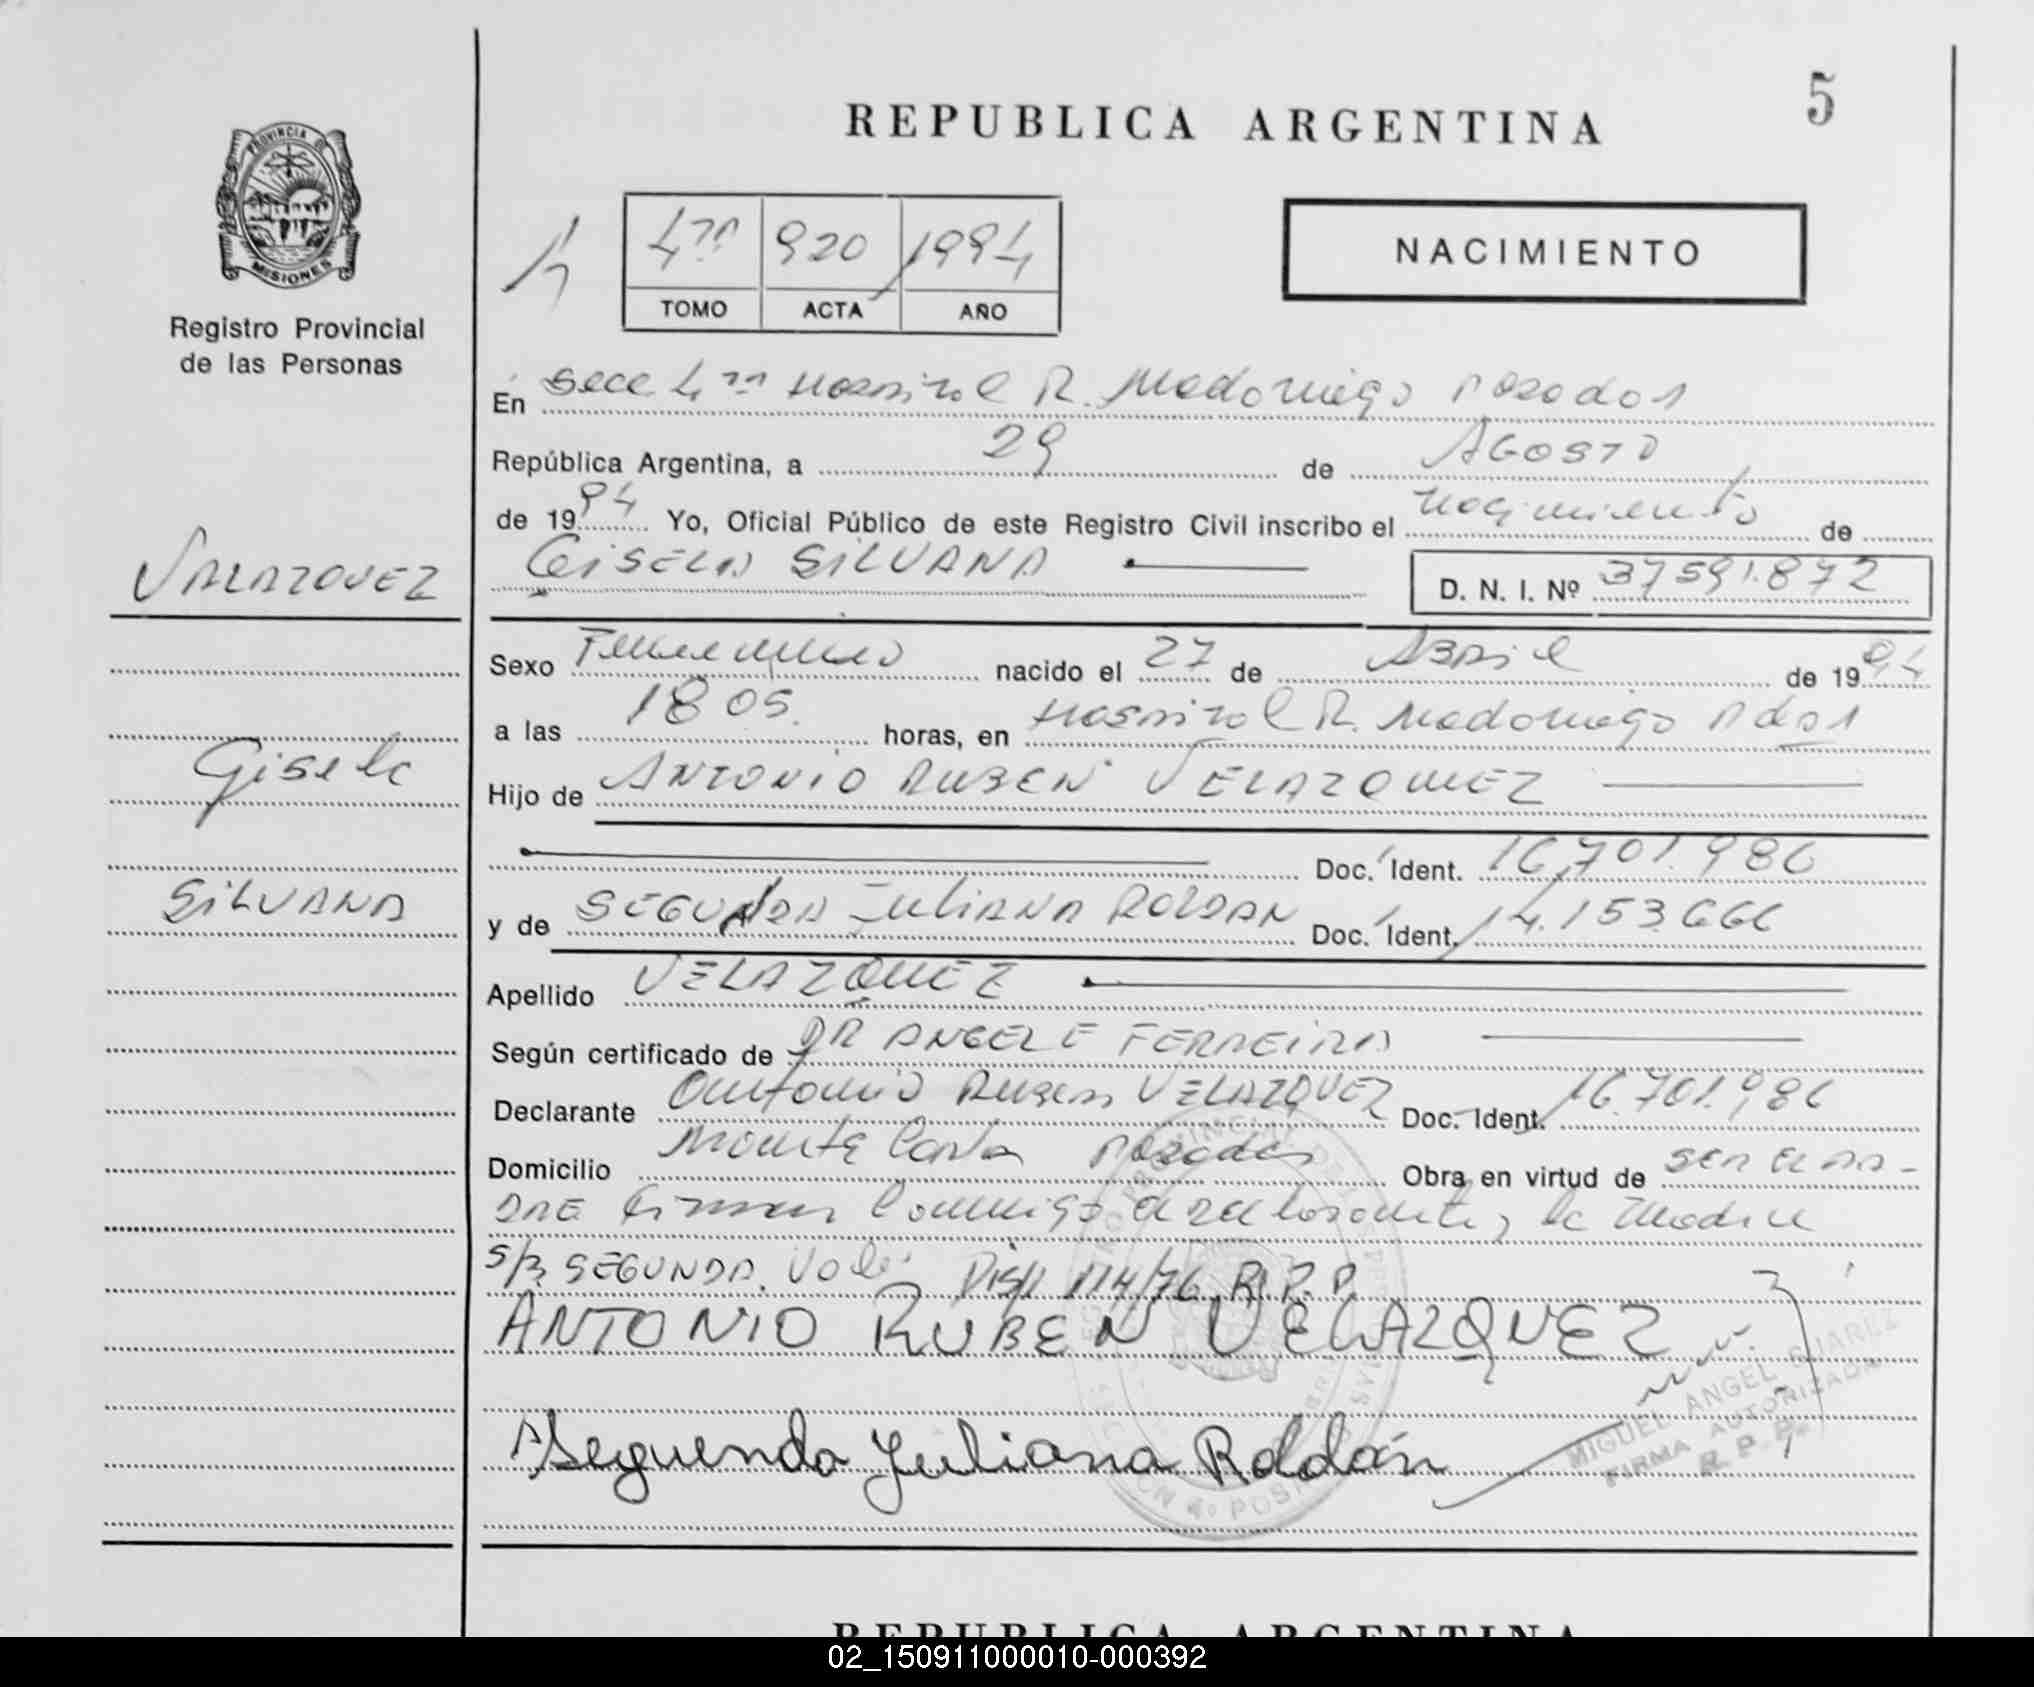 REPUBLICA ARGENTINA
5
PROVINCIA D
MISIONES
Registro Provincial
de las Personas
4ª 920 1994
TOMO ACTA AÑO
NACIMIENTO
En Secc 4ª Hospital R. Madariaga Posadas
República Argentina, a 29 de AGOSTO
de 1994 Yo, Oficial Público de este Registro Civil inscribo el nacimiento de
GISELA SILVANA D. N. I. Nº 37591.872
VALAZQUEZ
Gisela
SILVANA
Sexo Femenino nacido el 27 de Abril de 1994
a las 18 05. horas, en Hospital R. Madariaga Pdas
Hijo de ANTONIO RUBEN VELAZQUEZ
Doc. Ident. 16.701.986
y de SEGUNDA JULIANA ROLDAN Doc. Ident. 14.153.666
Apellido VELAZQUEZ
Según certificado de DR ANGEL E FERREIRA
Declarante Antonio Ruben VELAZQUEZ Doc. Ident. 16.701.986
Domicilio Posadas Obra en virtud de SER EL PA-
DRE Firman Conmigo el declarante, la Madre
S/R SEGUNDA. Vale. Disp 114/76 R.P.P.
ANTONIO RUBEN VELAZQUEZ
Segunda Juliana Roldán
MIGUEL ANGEL SUAREZ
FIRMA AUTORIZADA
R. P. P.
REPUBLICA ARGENTINA
02_150911000010-000392